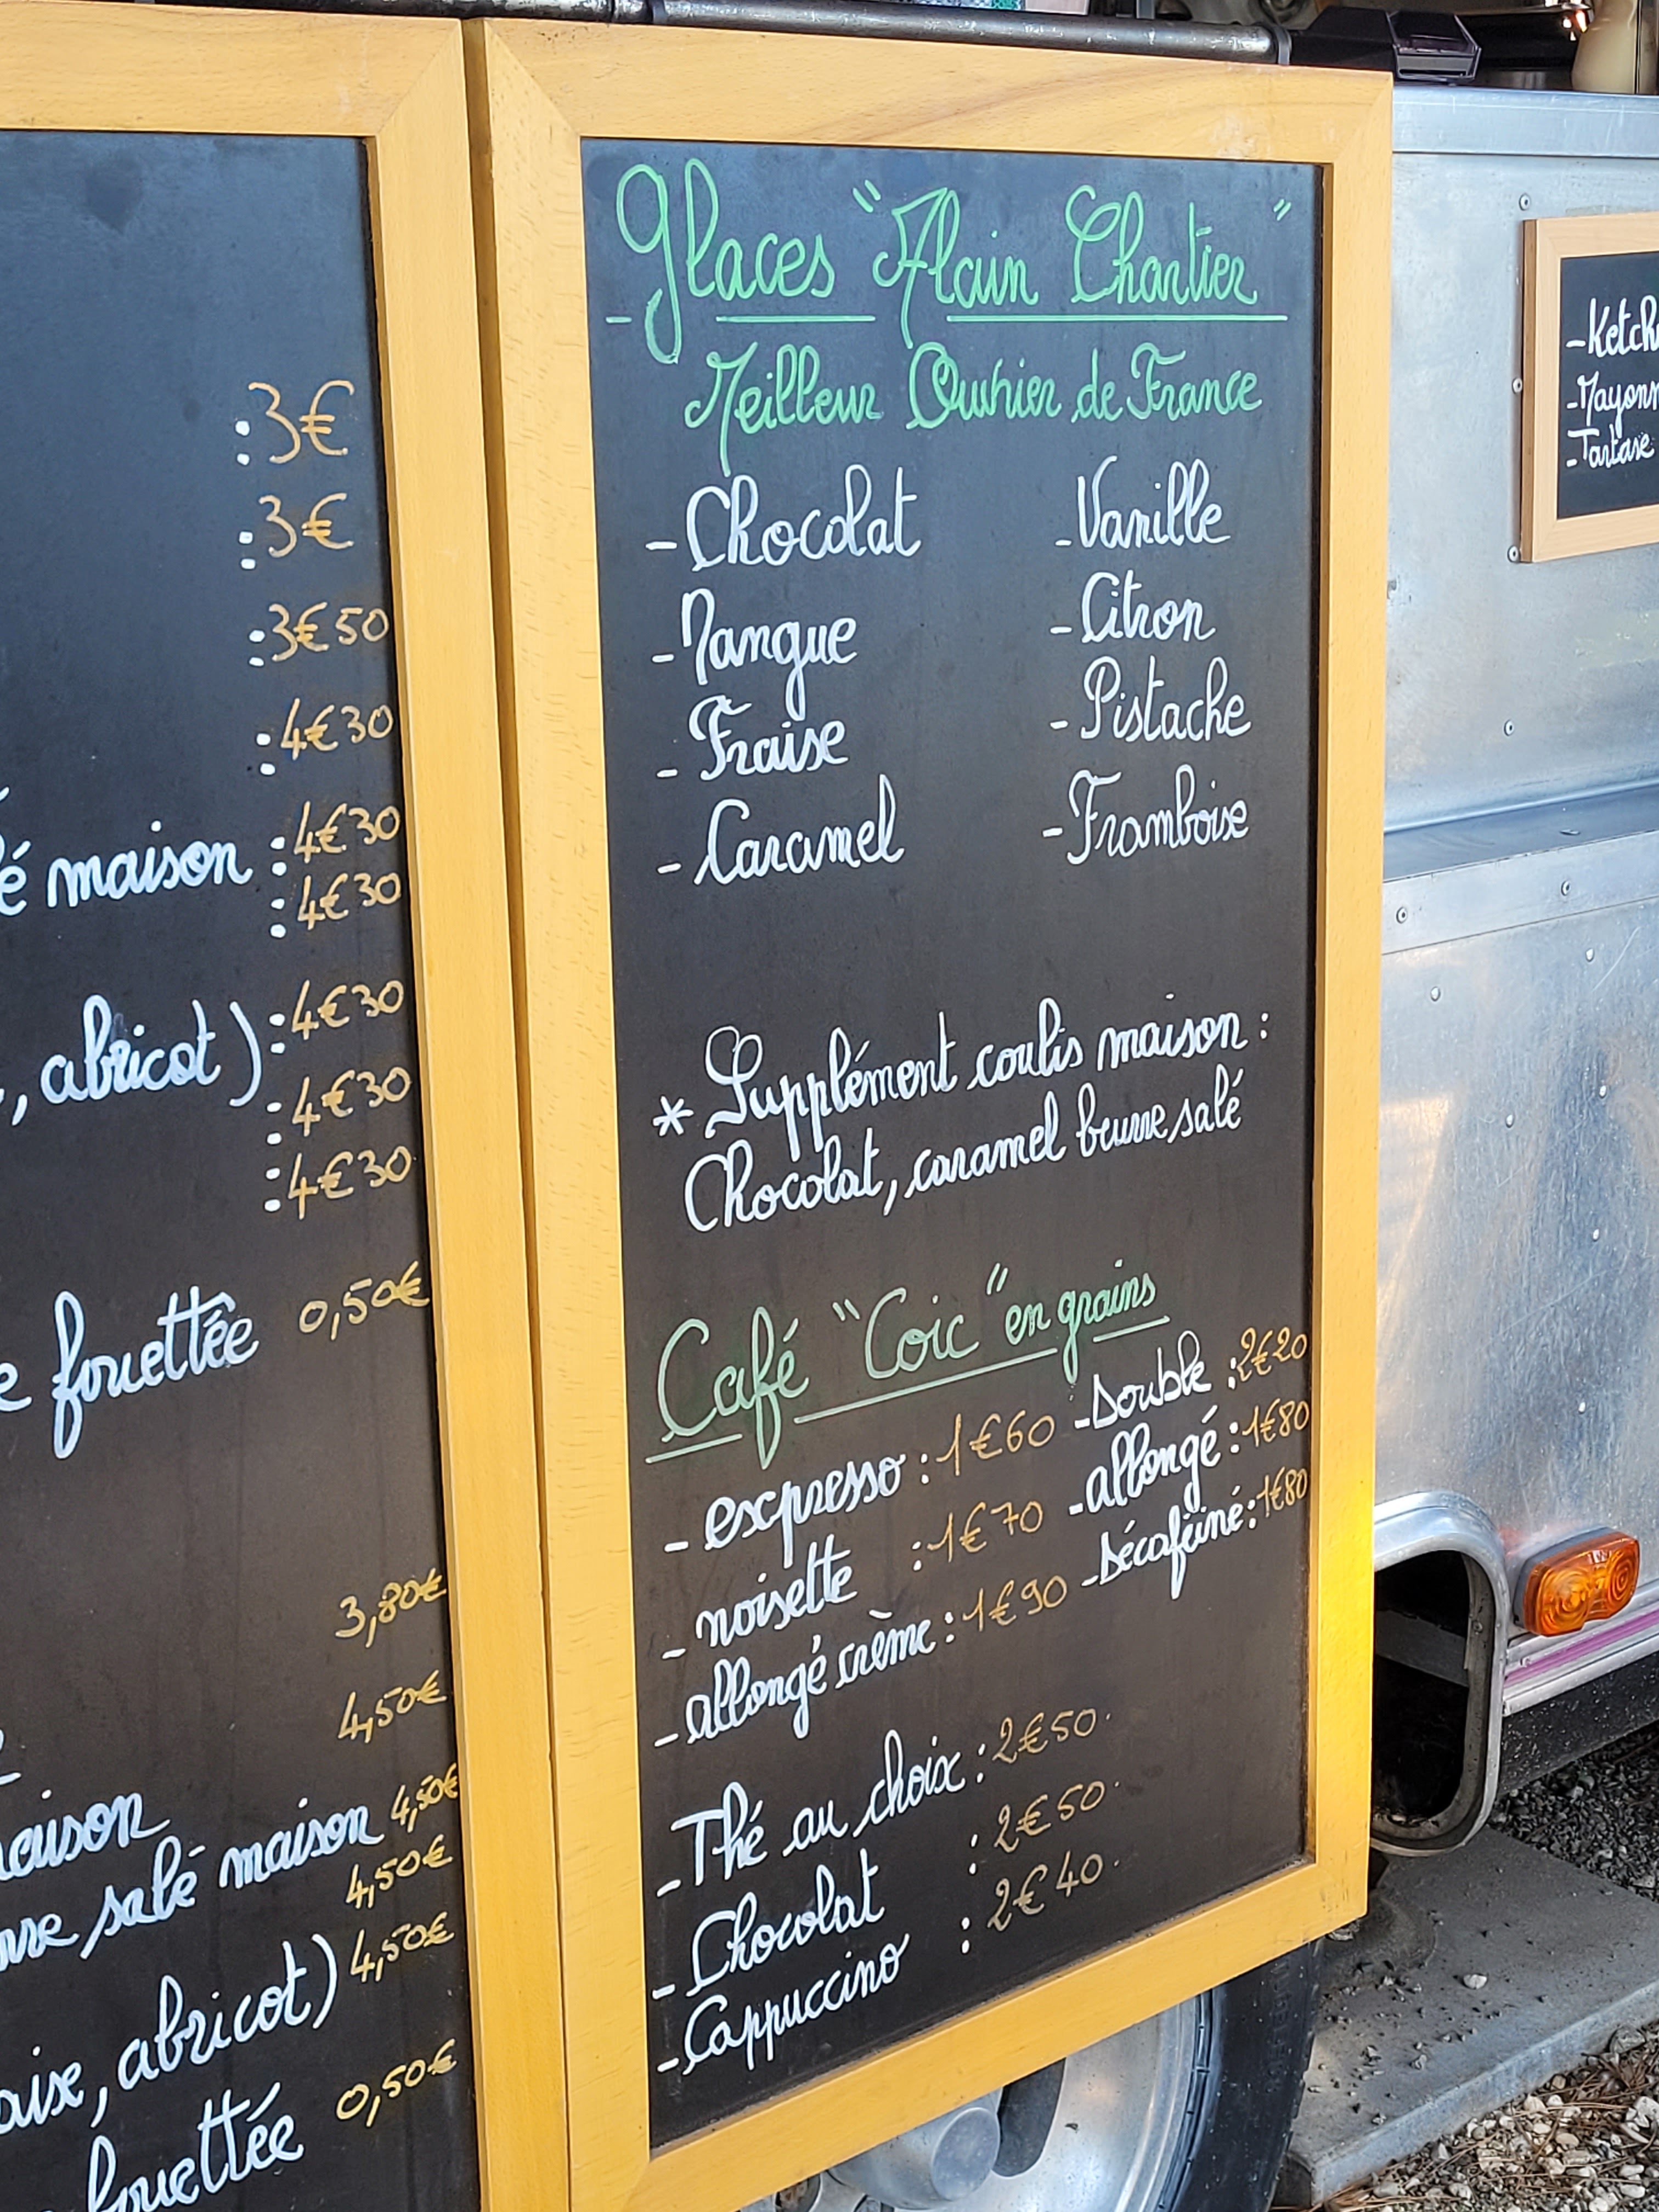 :3€
:3€
:3€50
:4€30
é maison :4€30
:4€30
, abricot) :4€30
:4€30
:4€30
fouettée 0,50€
3,80€
4,50€
maison
salé maison 4,50€
4,50€
, abricot) 4,50€
fouettée 0,50€
- Glaces "Alain Chartier"
Meilleur Ouvrier de France
- Chocolat - Vanille
- Mangue - Citron
- Fraise - Pistache
- Caramel - Framboise
* Supplément coulis maison :
Chocolat, caramel beurre salé
Café "Coic" en grains
- expresso : 1€60 - Double : 2€20
- noisette : 1€70 - allongé : 1€80
- allongé crème : 1€90 - Décafeiné : 1€80
- Thé au choix : 2€50.
- Chocolat : 2€50.
- Cappuccino : 2€40.
- Ketch
- Mayonn
- Tartare